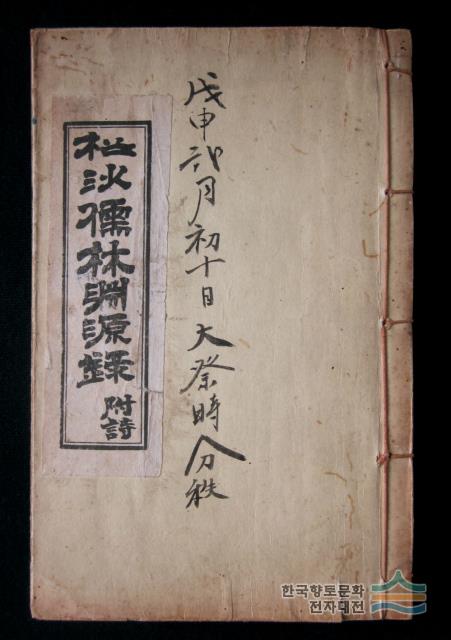 戊申弍月初十日大祭時分秩
松沙儒林淵源錄
附詩
한국향토문화
전자대전